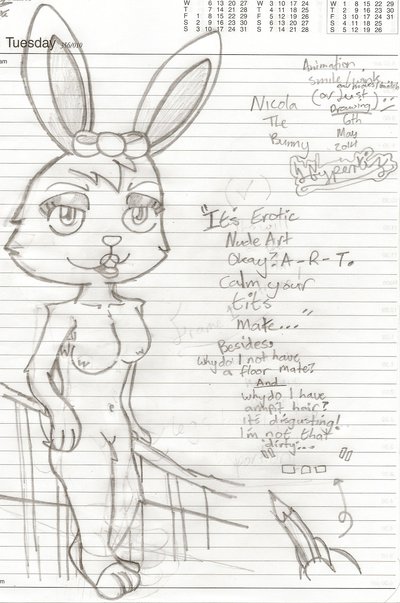 W 6 13 20 27
T 7 14 21 28
F 1 8 15 22 29
S 2 9 16 23 30
S 3 10 17 24 31
W 3 10 17 24
T 4 11 18 25
F 5 12 19 26
S 6 13 20 27
S 7 14 21 28
W 1 8 15 22 29
T 2 9 16 23 30
F 3 10 17 24 31
S 4 11 18 25
S 5 12 19 26
Tuesday
am
Animation
smile/work
(or Just
Drawing)
6th
May
2014
Nicola
The
Bunny
"It's Erotic
Nude Art
Okay? A-R-T.
Calm your
tits
Mate..."
Besides,
why do I not have
a floor mate?
And
why do I have
armpit hair?
It's disgusting!
I'm not that
dirty...
pm